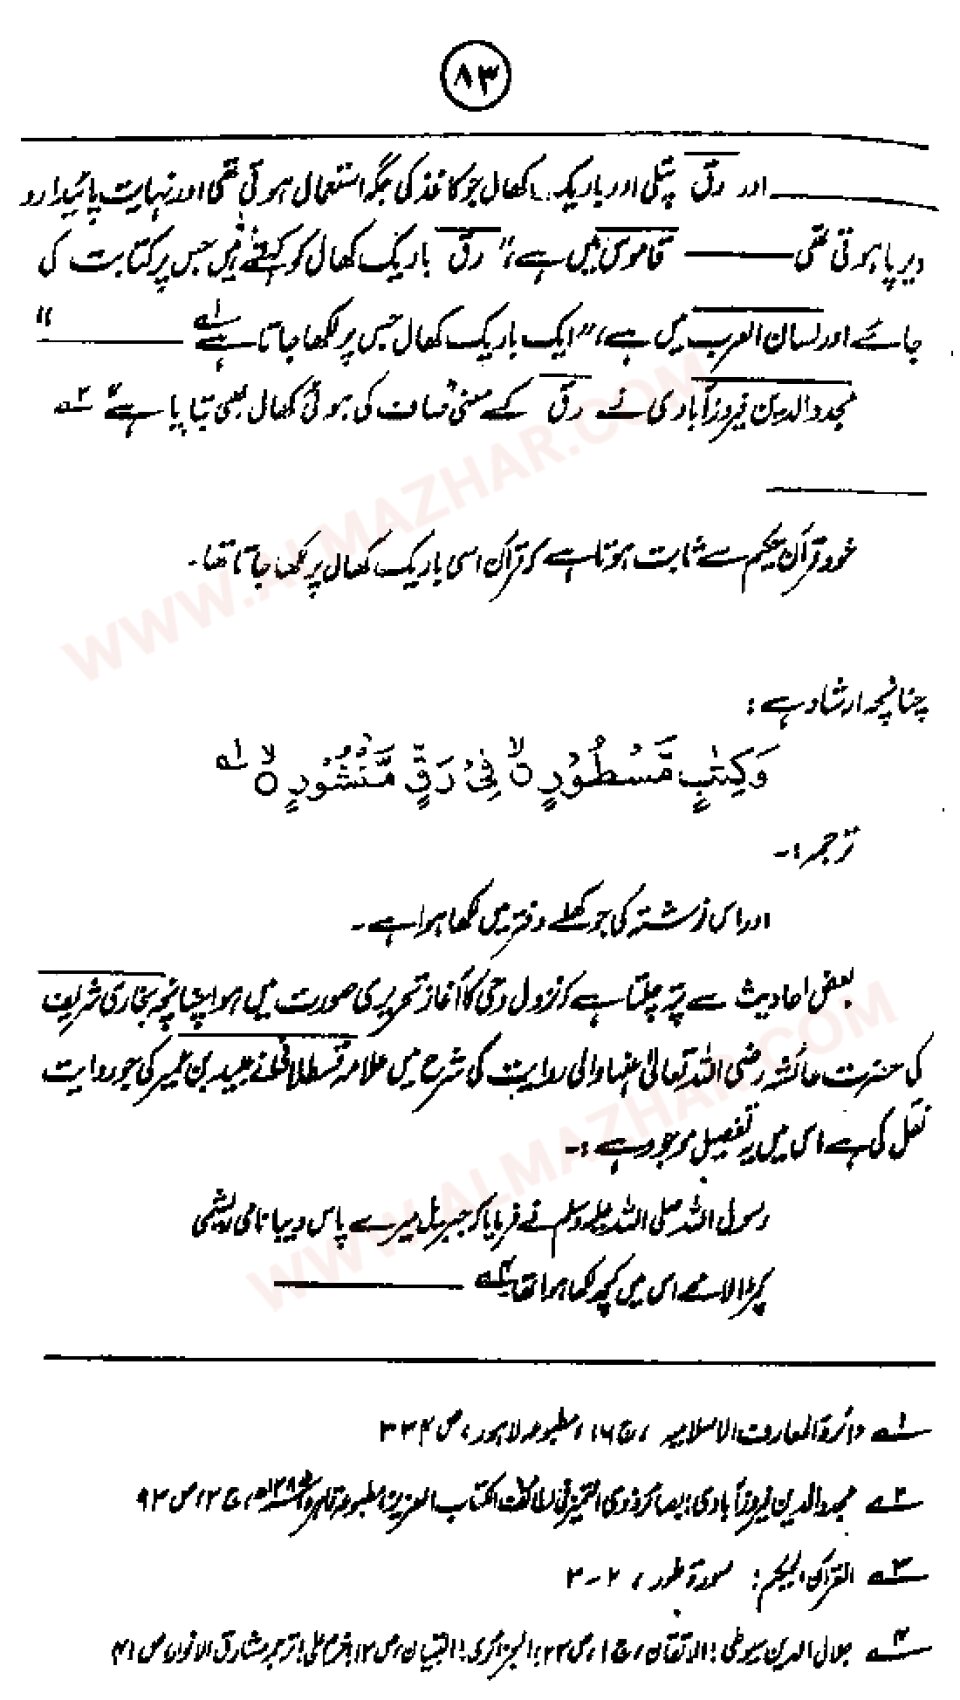 ۸۳
اور رق پتلی اور باریک کھال جو کاغذ کی جگہ استعمال ہوتی تھی اور نہایت پائیدار و
دیرپا ہوتی تھی ——— قاموس میں ہے، "رق باریک کھال کو کہتے ہیں جس پر کتابت کی
جائے اور لسان العرب میں ہے، "ایک باریک کھال جس پر لکھا جاتا ہے ۱؎ ——— "
مجدد الدین فیروز آبادی نے رق کے معنی "صاف کی ہوئی کھال بھی بتایا ہے" ۲؎
خود قرآن حکیم سے ثابت ہوتا ہے کہ قرآن اسی باریک کھال پر لکھا جاتا تھا۔
چنانچہ ارشاد ہے:
وَكِتٰبٍ مَّسْطُوْرٍ ۙ فِیْ رَقٍّ مَّنْشُوْرٍ ۙ ۱؎
ترجمہ:۔
اور اس نوشتہ کی جو کھلے دفتر میں لکھا ہوا ہے۔
بعض احادیث سے پتہ چلتا ہے کہ نزول وحی کا آغاز تحریری صورت میں ہوا چنانچہ بخاری شریف
کی حضرت عائشہ رضی اللہ تعالیٰ عنہا والی روایت کی شرح میں علامہ قسطلانی نے عبید بن عمیر کی جو روایت
نقل کی ہے اس میں یہ تفصیل موجود ہے:۔
رسول اللہ صلی اللہ علیہ وسلم نے فرمایا کہ جبریل میرے پاس دیبا نامی ریشمی
کپڑا لائے اس میں کچھ لکھا ہوا تھا ۴؎ ———
۱؎ دائرۃ المعارف الاسلامیہ، ج ۱۶، مطبوعہ لاہور، ص ۳۳۴
۲؎ مجدد الدین فیروز آبادی: بصائر ذوی التمییز فی لطائف الکتاب العزیز، مطبوعہ قاہرہ ج ۳، ص ۹۳
۳؎ القرآن الحکیم: سورۃ طور، ۲-۳
۴؎ جلال الدین سیوطی: الاتقان، ج ۱، ص ۲۳؛ الجزائری: التبیان، ص ۱۲؛ خرم علی: ترجمہ مشارق الانوار، ص ۴۱